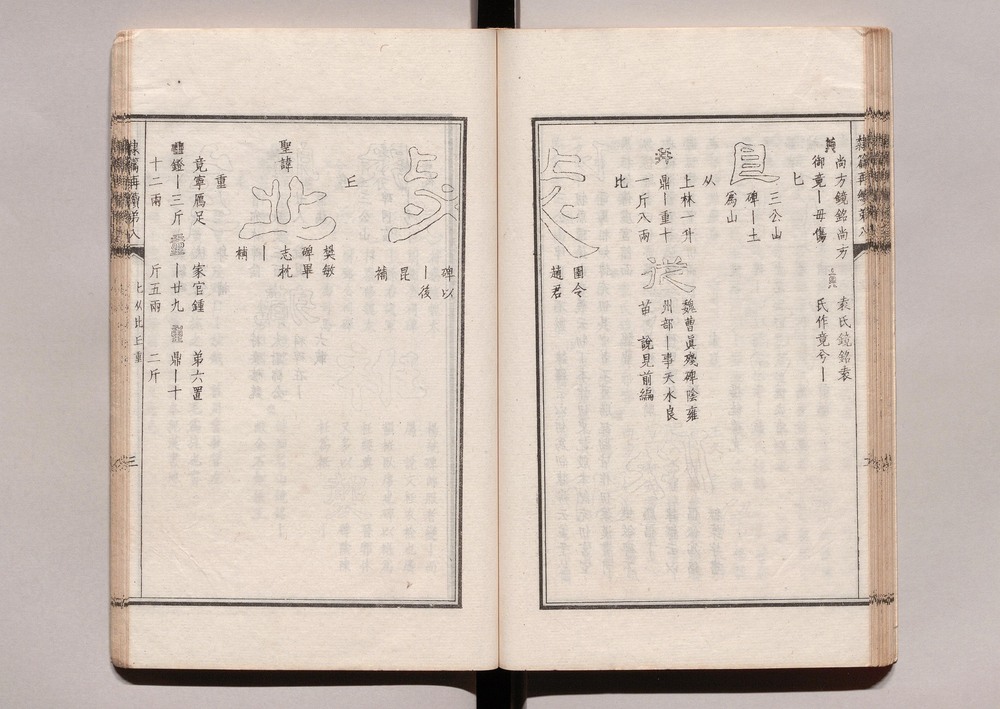 隸篇再續第八
尚方鏡銘尚方
御竟丨毋傷
袁氏鏡銘袁
氏作竟兮丨
匕
三公山
碑丨土
爲山
从
上林一升
鼎丨重十
一斤八兩
從
魏曹眞殘碑陰雍
州部丨事天水良
苗 說見前編
比
圉令
趙君
碑以
丨後
昆
補
丘
聖諱
樊敏
碑畢
志枕
丨
補
重
竟寧鴈足
鐙丨三斤
十二兩
家官鍾
丨廿九
斤五兩
弟六置
鼎丨十
二斤
隸篇再續第八
匕从比丘重
三